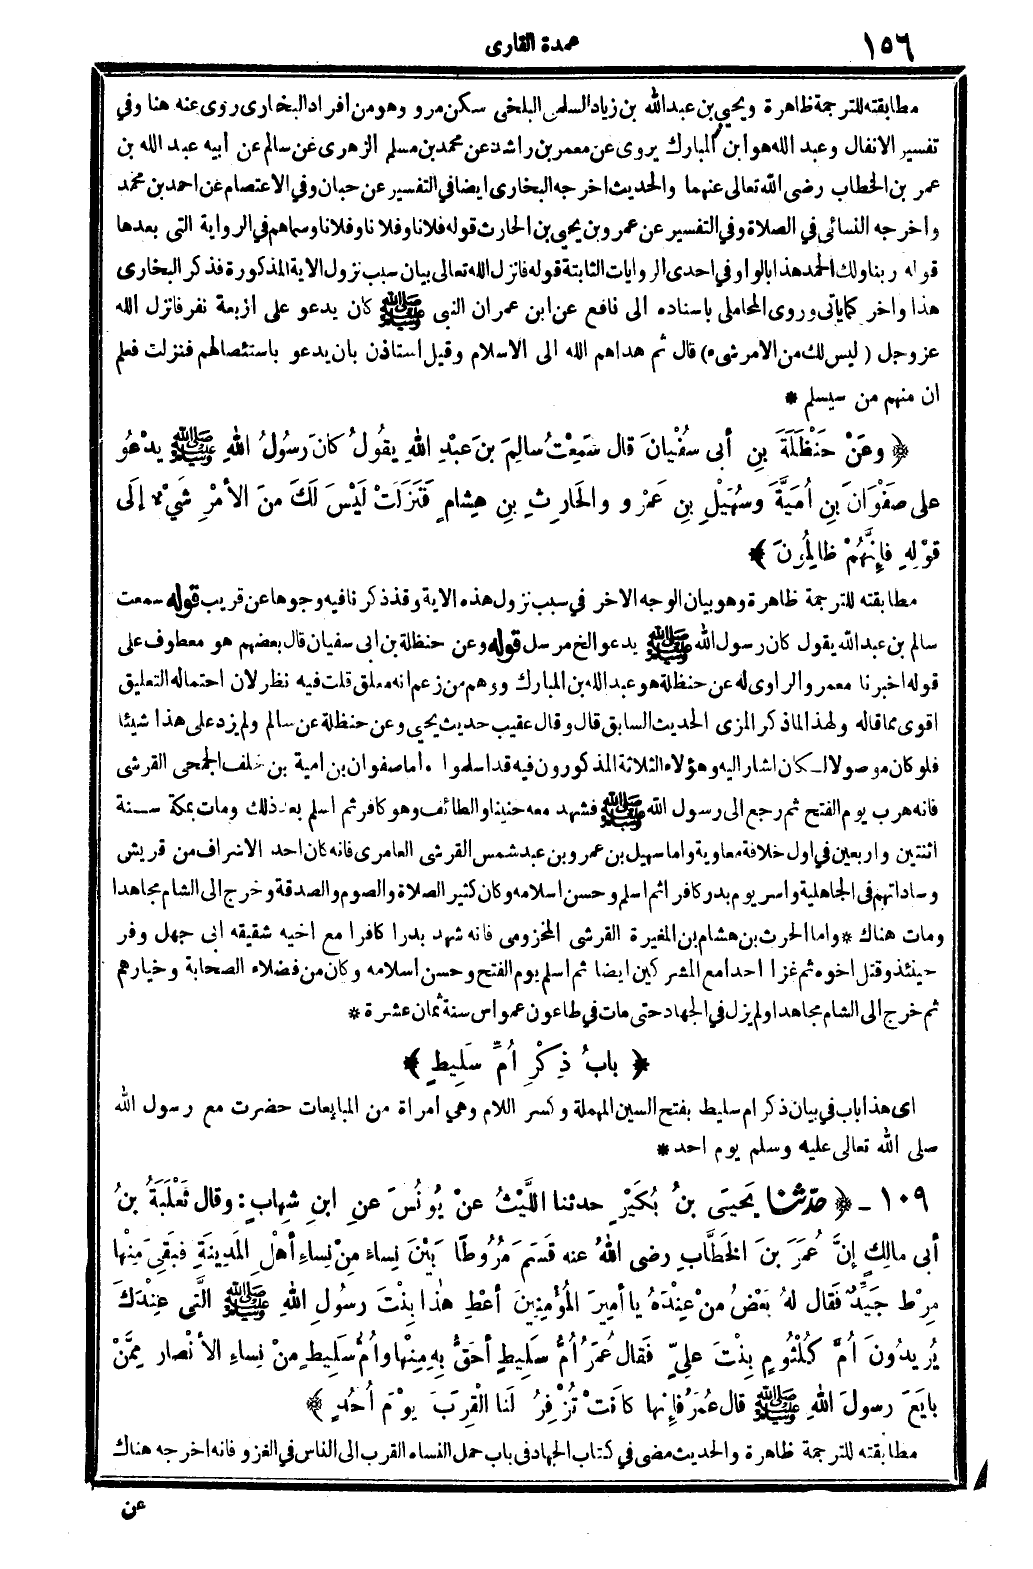 ١٥٦
عمدة القارى
مطابقته للترجمة ظاهرة ويحيى بن عبدالله بن زياد السلمى البلخى سكن مرو وهو من أفراد البخارى روى عنه هنا وفي
تفسير الانفال وعبد الله هو ابن المبارك يروى عن معمر بن راشد عن محمد بن مسلم الزهرى عن سالم عن أبيه عبد الله بن
عمر بن الخطاب رضى الله تعالى عنهما والحديث اخرجه البخارى ايضا في التفسير عن حبان وفي الاعتصام عن احمد بن محمد
واخرجه النسائى في الصلاة وفي التفسير عن عمرو بن يحيى بن الحارث قوله فلانا وفلانا وفلانا وسماهم في الرواية التى بعدها
قوله ربنا ولك الحمد هذا بالواو في احدى الروايات الثابتة قوله فانزل الله تعالى بيان سبب نزول الاية المذكورة فذكر البخارى
هذا واخر كما يأتى وروى المحاملى باسناده الى نافع عن ابن عمر ان النبى ﷺ كان يدعو على اربعة نفر فانزل الله
عزوجل (ليس لك من الامر شىء) قال ثم هداهم الله الى الاسلام وقيل استاذن بان يدعو باستئصالهم فنزلت فعلم
ان منهم من سيسلم *
﴿ وعَنْ حَنْظَلَةَ بنِ أبى سُفْيانَ قال سَمِعْتُ سالِمَ بنَ عبْدِ اللهِ يقُولُ كانَ رسُولُ اللهِ ﷺ يدْعُو
على صَفْوَانَ بنِ أُمَيَّةَ وسُهَيْلِ بنِ عَمْرٍو والحَارِثِ بنِ هِشامٍ فَنَزَلَتْ لَيْسَ لَكَ مَنَ الأمْرِ شَيْءٌ إلَى
قوْلِهِ فإنَّهُمْ ظالِمُونَ ﴾
مطابقته للترجمة ظاهرة وهو بيان الوجه الاخر في سبب نزول هذه الاية وقد ذكرنا فيه وجوها عن قريب قوله سمعت
سالم بن عبدالله يقول كان رسول الله ﷺ يدعو الخ مرسل قوله وعن حنظلة بن ابى سفيان قال بعضهم هو معطوف على
قوله اخبرنا معمر والراوى له عن حنظلة هو عبدالله بن المبارك ووهم من زعم انه معلق قلت فيه نظر لان احتماله التعليق
اقوى مما قاله ولهذا لما ذكر المزى الحديث السابق قال وقال عقيب حديث يحيى وعن حنظلة عن سالم ولم يزد على هذا شيئا
فلو كان موصولا لكان اشار اليه وهؤلاء الثلاثة المذكورون فيه قد اسلموا * أما صفوان بن امية بن خلف الجمحى القرشى
فانه هرب يوم الفتح ثم رجع الى رسول الله ﷺ فشهد معه حنينا والطائف وهو كافر ثم اسلم بعد ذلك ومات بمكة سنة
اثنتين واربعين في اول خلافة معاوية واما سهيل بن عمرو بن عبد شمس القرشى العامرى فانه كان احد الاشراف من قريش
وساداتهم في الجاهلية واسر يوم بدر كافرا ثم اسلم وحسن اسلامه وكان كثير الصلاة والصوم والصدقة وخرج الى الشام مجاهدا
ومات هناك * واما الحرث بن هشام بن المغيرة القرشى المخزومى فانه شهد بدرا كافرا مع اخيه شقيقه ابى جهل وفر
حينئذ وقتل اخوه ثم غزا احدا مع المشركين ايضا ثم اسلم يوم الفتح وحسن اسلامه وكان من فضلاء الصحابة وخيارهم
ثم خرج الى الشام مجاهدا ولم يزل في الجهاد حتى مات في طاعون عمواس سنة ثمان عشرة *
﴿ بابُ ذِكْرِ أُمِّ سَلِيطٍ ﴾
اى هذا باب في بيان ذكر ام سليط بفتح السين المهملة وكسر اللام وهي امراة من المبايعات حضرت مع رسول الله
صلى الله تعالى عليه وسلم يوم احد *
١٠٩ - ﴿ حدّثنا يَحيَى بنُ بُكَيْرٍ حدثنا اللَّيْثُ عنْ يُونُسَ عنِ ابنِ شِهابٍ: وقال ثَعْلَبَةُ بنُ
أبى مالِكٍ إنَّ عُمَرَ بنَ الخَطَّابِ رضى اللهُ عنه قَسَمَ مُرُوطًا بَيْنَ نِساءٍ مِنْ نِساءِ أهْلِ المَدِينَةِ فبَقِيَ مِنْها
مِرْطٌ جَيِّدٌ فَقال لهُ بَعْضُ مَنْ عِنْدَهُ يا أمِيرَ المُؤْمِنِينَ أعْطِ هٰذا بِنْتَ رسُولِ اللهِ ﷺ الَّتى عِنْدَكَ
يُرِيدُونَ أُمَّ كُلْثُومٍ بِنْتَ عَلِيٍّ فَقال عُمَرُ أُمُّ سَلِيطٍ أحَقُّ بِهِ مِنْها وأُمُّ سَلِيطٍ مِنْ نِساءِ الأنْصارِ مِمَّنْ
بايَعَ رسولَ اللهِ ﷺ قال عُمَرُ فإنها كانَتْ تُزْفِرُ لَنا القِرَبَ يَوْمَ أُحُدٍ ﴾
مطابقته للترجمة ظاهرة والحديث مضى في كتاب الجهاد فى باب حمل النساء القرب الى الناس في الغزو فانه اخرجه هناك
عن